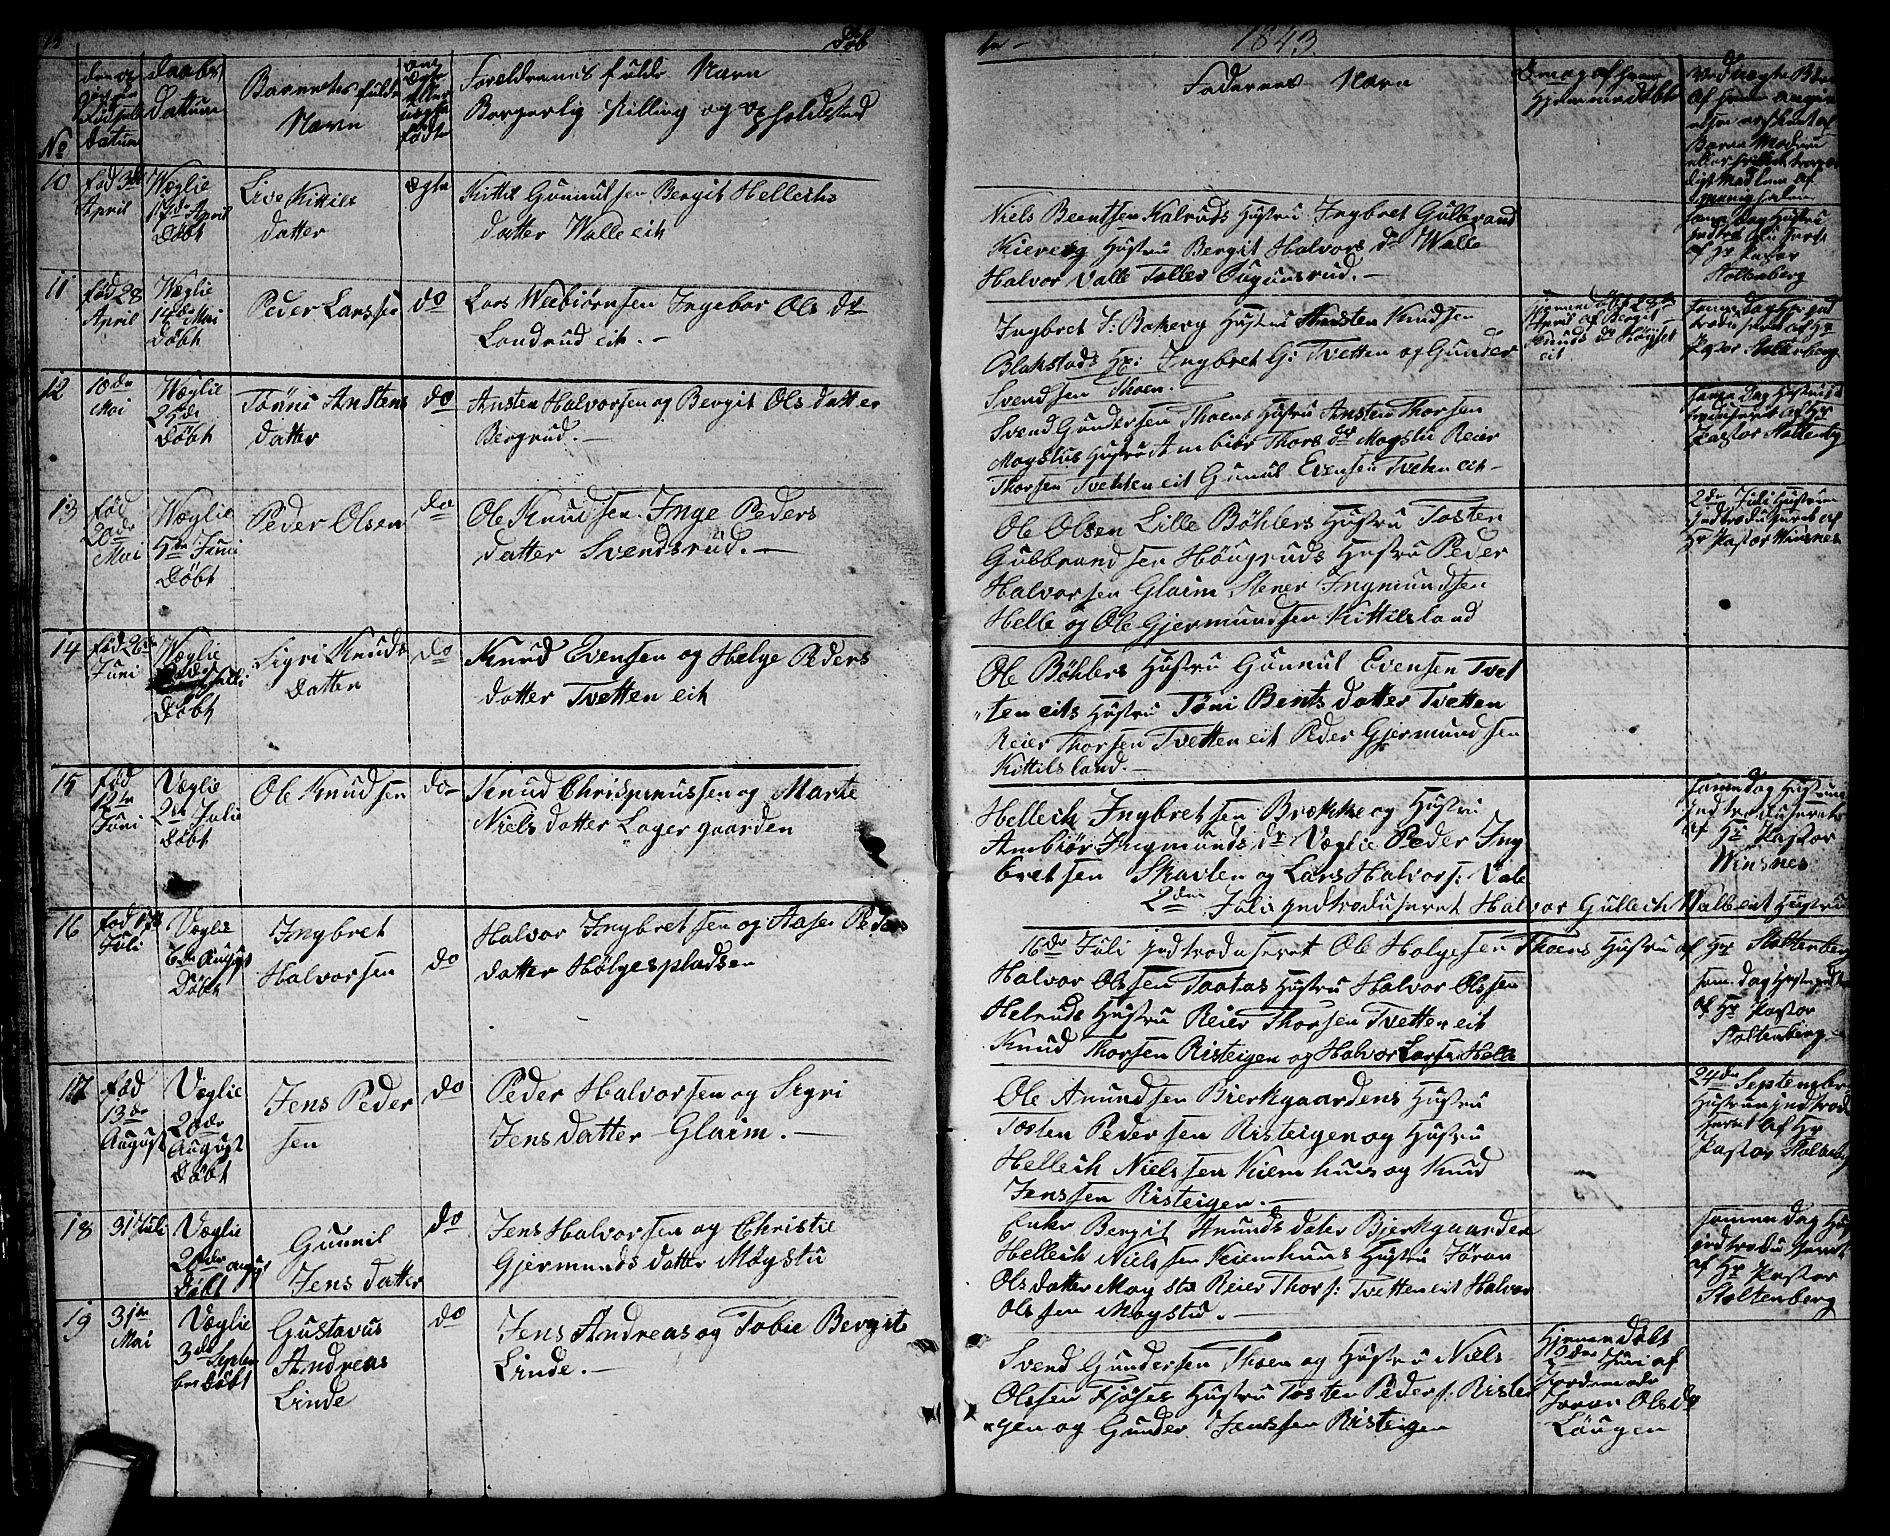 Döb
te
1843
No
den og
Födsels
datum
daabs
dattum
Barnets fulde
Navn
om
ægte
eller
uægte
födte
Foreldrenes fulde Navn
Borgerlig stilling og opholdsted
Fadernes Navn
10
fød 3de
April
Weglie
17de April
Döbt
Live Kittils
datter
ægte
Kittil Gunnulsen Bergit Hellechs
datter Walle eit
Niels Bentsen Kalruds Hustru Ingbret Gulbrand
Kiewerg Hustru Bergit Halvors dr Walle
Halvor Valle Tollef
Samedag Hustru
af Hr Pastor
Stoltenberg
11
fød 28
April
Weglie
14de Mai
Döbt
Peder Larssen
do
Lars Weebiörnsen Ingebor Ols dr
Landrud eit.
Ingbret S: Bakerg Hustru Ansten Knudsen
Blakstads Hr: Ingbret G: Tvetten og Gunder
Svendsen Thoen.
Hjemmedöbt 28de
April af Bergit
eit
Pastor Stoltenberg
12
10de
Mai
Weglie
25de
Döbt
Tönni Anstens
datter
do
Ansten Halvorsen og Bergit Ols datter
Bergrud.
Svend Gundersen Thoens Hustru Ansten Thorsen
Mogstus Hustru Ambiör Thors dr Mogstu Reier
Thorsen Tvetten eit Gunul Evensen Tvetten eit
samedag Hustruen
Pastor Stoltenberg
13
fød
20de
Mai
Weglie
5te Juni
Döbt
Peder Olsen
do
Ole Knudsen Inge Peders
datter Svendsrud.
Ole Olsen Lille Böhlers Hustru Tosten
Gulbrandsen Höugruds Hustru Peder
Halvorsen Glaim Stener Ingmundsen
Helle og Ole Gjermundsen Kittilsland
2den Juli Hustruen
Indtroduseret af
Hr Pastor Winsnes
14
fød 26de
Juni
Weglie
Döbt
Sigri Knuds
Datter
do
Knud Evensen og Helge Peders
datter Tvetten eit
Ole Böhlers Hustru Gunnul Evensen Tvet
ten eits Hustru Töni Bents datter Tvetten
Reier Thorsen Tvetten eit Peder Gjermundsen
Kittilsland.
15
fød
12te
Juni
Veglie
2den Julie
Döbt
Ole Knudsen
do
Knud Chrispinussen og Marte
Niels datter Lager gaarden
Hellech Ingbretsen Brække og Hustru
Ambiör Ingmunds dr Veglie Peder Ing
bretsen Skavlen og Lars Halvors: Vale
samedag Hustruen
Indtroduseret
af Hr Pastor
Winsnes
2den Juli Indtroduseret Halvor Gullech Walle eit Hustru
16
fød 17de
Juli
Veglie
6te August
Döbt
Ingbret
Halvorsen
do
Halvor Ingbretsen og Aase Peders
datter Hölgespladsen
16de Juli indtroduseret Ole Holgesen Thoens Hustru af Hr Stoltenberg
Halvor Olssen Taatas Hustru Halvor Olssen
Helruds Hustru Reier Thorsen Tvetten eit
Knud Thorsen Risteigen og Halvor Larsen Helle
af Hr Pastor
Stoltenberg
17
fød
13de
August
Veglie
20de
August
Döbt
Jens Peder
sen
do
Peder Halvorsen og Sigri
Jensdatter Glaim.
Ole Anundsen Bierkgaardens Hustru
Tosten Pedersen Risteigen og Hustru
Hellech Nielssen Kiemhuus og Knud
Jenssen Risteigen.
24de September
Hustruen indtrod
seret af Hr
Pastor Stoltenberg
18
31 Juli
Veglie
20de august
Döbt
Gunnil
Jens datter
do
Jens Halvorsen og Christie
Gjermunds datter Mögstu
Enke Bergit Anunds dater Bjerkgaarden
Hellech Nielssen Keiemhuus Hustru Joran
Ols datter Mogstu Reier Thors: Tvetten eit Halvor
Olssen Mogstu.
sammedag Hus
indtroduseret
af Hr Pastor
Stoltenberg
19
31te
Mai
Veglie
3de Septem
ber Döbt
Gustavus
Andreas
Linde
do
Jens Andreas og Tobie Bergite
Linde.
Svend Gundersen Thoen og Hustru Niels
Olssen Fjöses Hustru Tosten Peders: Ristei
gen og Gunder Jentssen Risteigen
Hjemmedöbt
Juni af
Jordemoder
Joran Olsdr
Löugen